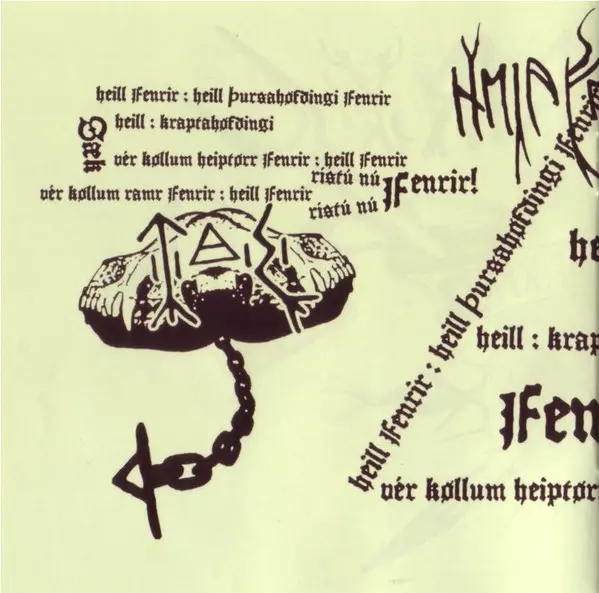 heill Fenrir : heill þursahøfðingi Fenrir
heill : kraptahøfðingi
Sæk
vér køllum heiptørr Fenrir : heill Fenrir
ristú nú
Fenrir!
vér køllum ramr Fenrir : heill Fenrir
ristú nú
heill Fenrir : heill þursahøfðingi Fenrir
he
heill : krap
Fen
vér køllum heiptørr